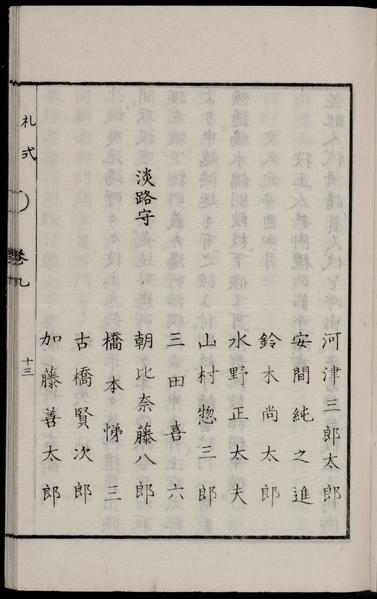 河津三郎太郎
安間純之進
鈴木尚太郎
水野正太夫
山村惣三郎
三田喜六
淡路守 朝比奈藤八郎
橋本悌三
古橋賢次郎
加藤善太郎
礼式 巻九 十三